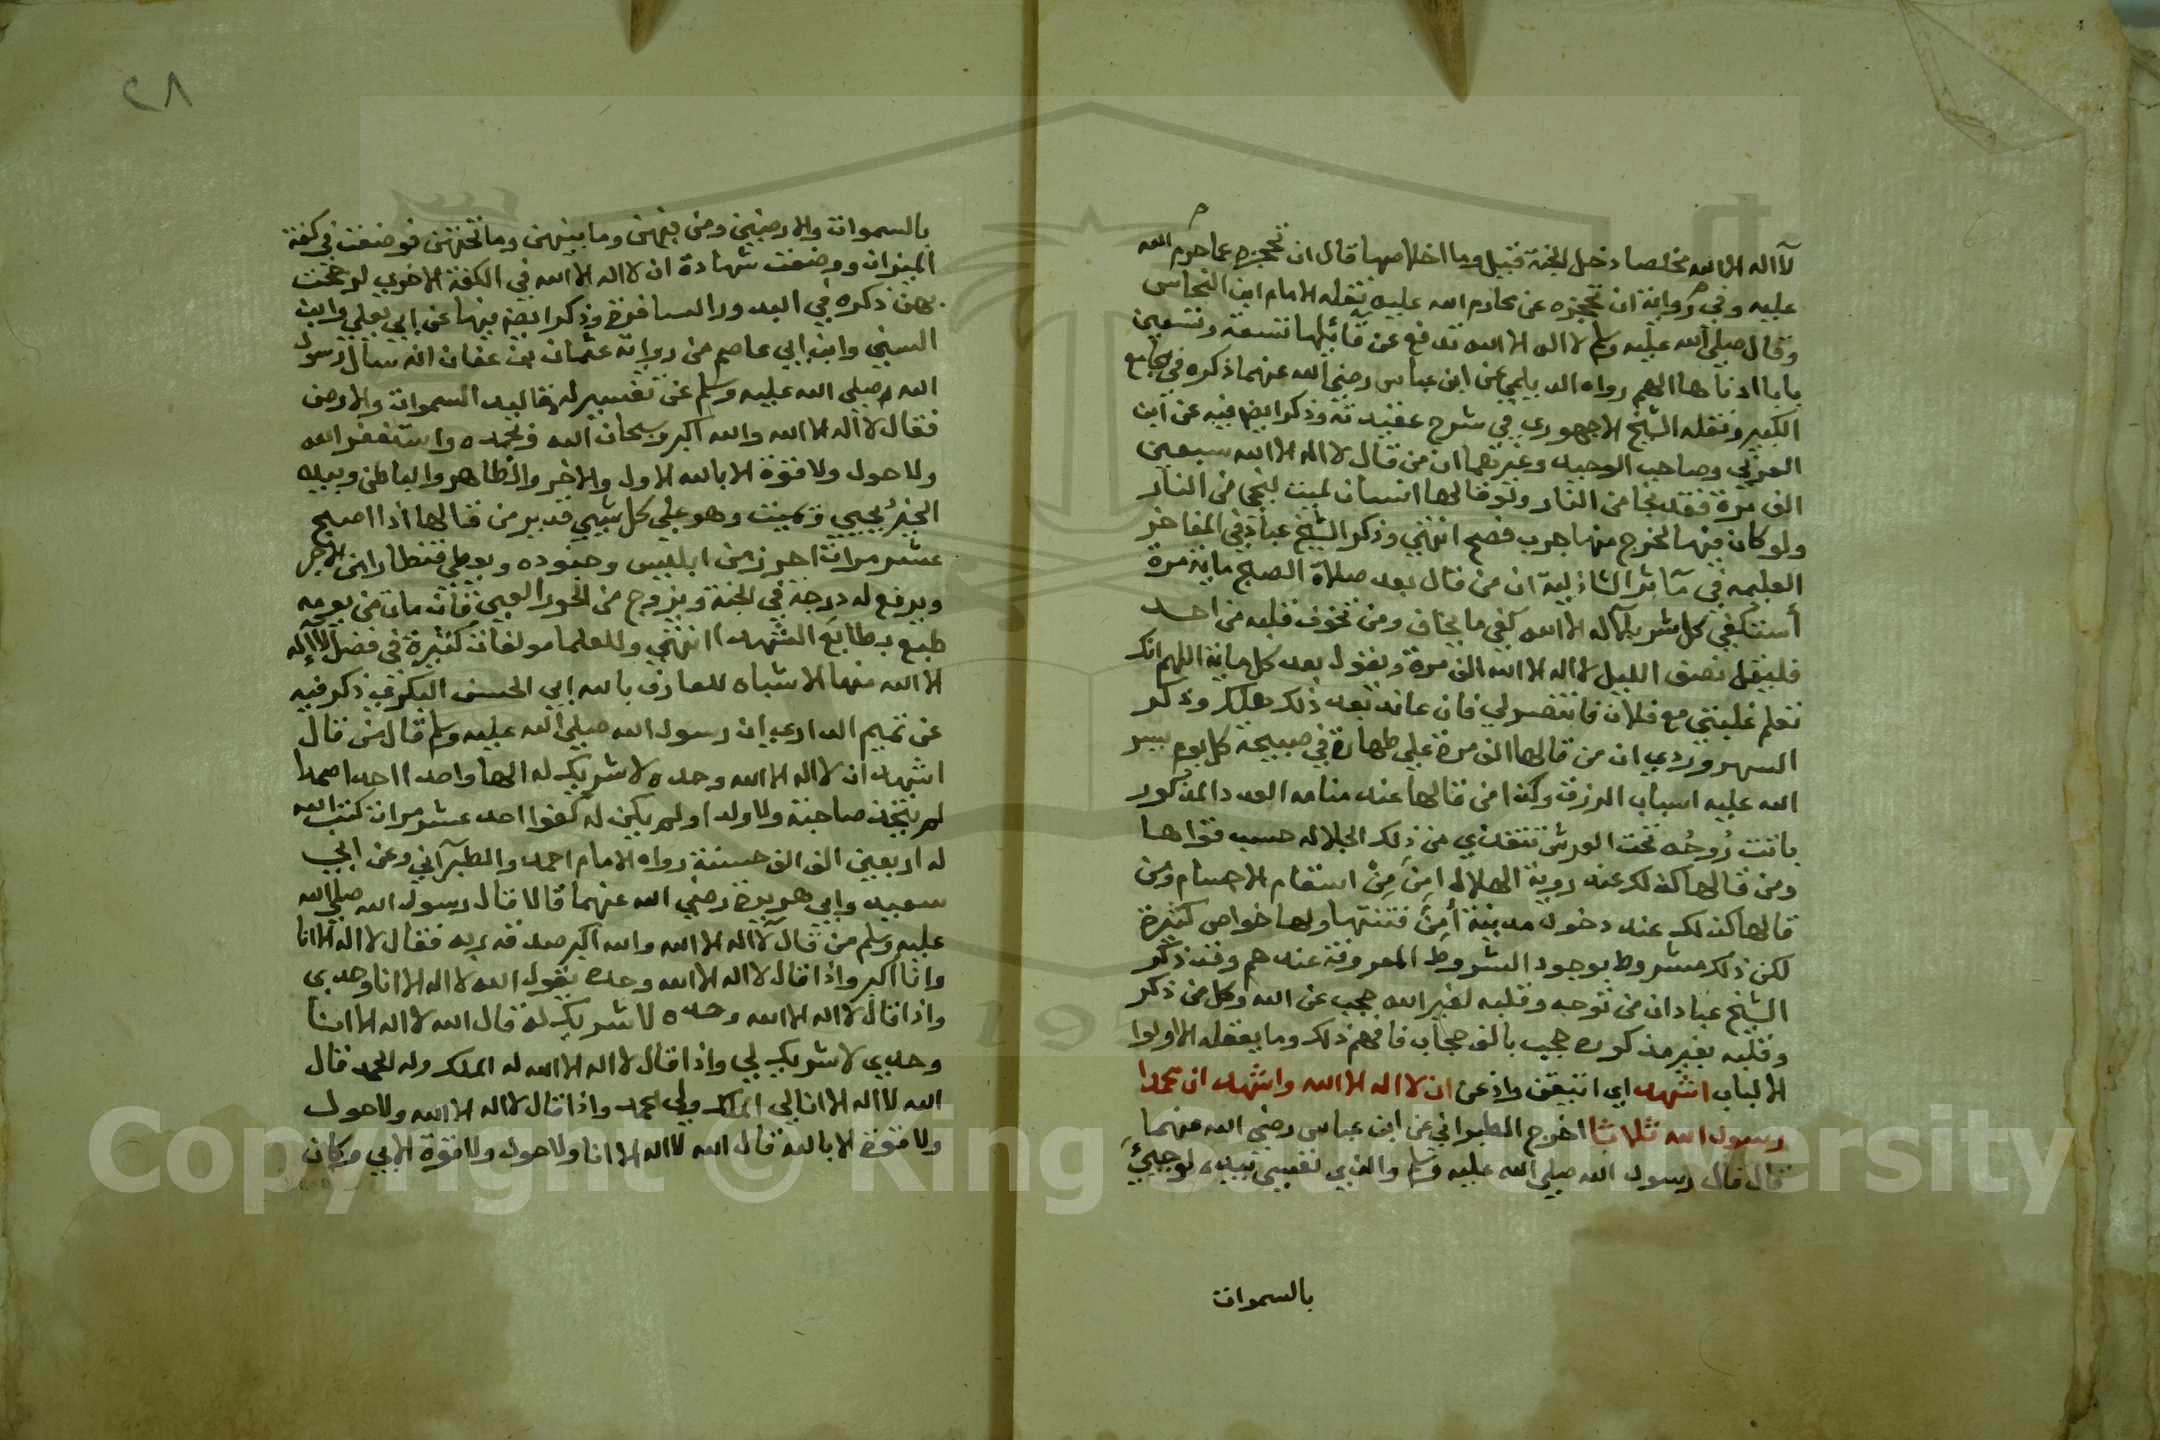 لا اله الا الله مخلصا دخل الجنة قيل وما اخلاصها قال ان تحجزه عما حرم الله
عليه وفي رواية ان تحجزه عن محارم الله عليه نقله الامام ابن النحاس
وقال صلى الله عليه وسلم لا اله الا الله تدفع عن قائلها تسعة وتسعين
بابا ادناها الهم رواه الديلمي عن ابن عباس رضي الله عنهما ذكره في جامع
الكبير ونقله الشيخ الاجهوري في شرح عقيدته وذكر ايضا فيه عن ابن
العربي وصاحب الوحيد وغيرهما ان من قال لا اله الا الله سبعين
الف مرة فقد نجا من النار ولو قالها انسان لميت لنجي من النار
ولو كان فيها لخرج منها جرب فصح انتهي وذكر الشيخ عباد في المفاخر
العليه في مآثر الشاذلية ان من قال بعد صلاة الصبح ماية مرة
أستكفي كل شر بلا اله الا الله كفي ما يخاف ومن تخوف قلبه من احد
فليقل نصف الليل لا اله الا الله الف مرة ويقول بعد كل ماية اللهم انك
تعلم غلبني مع فلان فانتصر لي فان عاند بعد ذلك هلك وذكر
السهروردي ان من قالها الف مرة علي طهارة في صبيحة كل يوم يسر
الله عليه اسباب الرزق وكذا من قالها عند منامه العدد المذكور
باتت رُوحُه تحت العرش تتغذي من ذلك الجلاله حسب قواها
ومن قالها كذلك عند روية الهلال امِنَ مِنْ اسقام الاجسام ومن
قالها كذلك عند دخول مدينة أمِنَ فتنتها ولها خواص كثيرة
لكن ذلك مشروط بوجود الشروط المعروفة عندهم وقد ذكر
الشيخ عباد ان من توجه وقلبه لغير الله حجب عن الله وكل من ذكر
وقلبه بغير مذكوره حجب بالف حجاب فافهم ذلك وما يعقله الا اولوا
الالباب اشهد اي اتيقن واذعن ان لا اله الا الله واشهد ان محمدا
رسول الله ثلاثا اخرج الطبراني عن ابن عباس رضي الله عنهما
قال قال رسول الله صلى الله عليه وسلم والذي نفسي بيده لو جيئ
بالسموات
٢٨
بالسموات والارضين ومن فيهن وما بينهن وما تحتهن فوضعت في كفة
الميزان ووضعت شهادة ان لا اله الا الله في الكفة الاخري لرجحت
بهن ذكره في البدور السافرة وذكر ايضا فيها عن ابي يعلي وابن
السني وابن ابي عاصم من رواية عثمان بن عفان انه سال رسول
الله صلى الله عليه وسلم عن تفسير له مقاليد السموات والارض
فقال لا اله الا الله والله اكبر وسبحان الله وبحمده واستغفر الله
ولا حول ولا قوة الا بالله الاول والاخر والظاهر والباطن وبيده
الخير يحيي ويميت وهو علي كل شيي قدير من قالها اذا اصبح
عشر مرات احرز من ابليس وجنوده ويعطي قنطارا من الاجر
ويرفع له درجة في الجنة ويزوج من الحور العين فان مات من يومه
طبع بطابع الشهدا انتهي وللعلما مولفات كثيرة في فضل لا اله
الا الله منها الاشباه للعارف بالله ابي الحسن البكري ذكر فيه
عن تميم الداري ان رسول الله صلى الله عليه وسلم قال من قال
اشهد ان لا اله الا الله وحده لا شريك له الها واحدا احدا صمدا
لم يتخذ صاحبة ولا ولدا ولم يكن له كفوا احد عشر مرات كتب الله
له اربعين الف الف حسنة رواه الامام احمد والطبراني وعن ابي
سعيد وابي هريرة رضي الله عنهما قالا قال رسول الله صلى الله
عليه وسلم من قال لا اله الا الله والله اكبر صدقه ربه فقال لا اله الا انا
وانا اكبر واذا قال لا اله الا الله وحده يقول الله لا اله الا انا وحدي
واذا قال لا اله الا الله وحده لا شريك له قال الله لا اله الا انا
وحدي لا شريك لي واذا قال لا اله الا الله له الملك وله الحمد قال
الله لا اله الا انا لي الملك ولي الحمد واذا قال لا اله الا الله ولا حول
ولا قوة الا بالله قال الله لا اله الا انا ولا حول ولا قوة الا بي وكان
Copyright © King Saud University